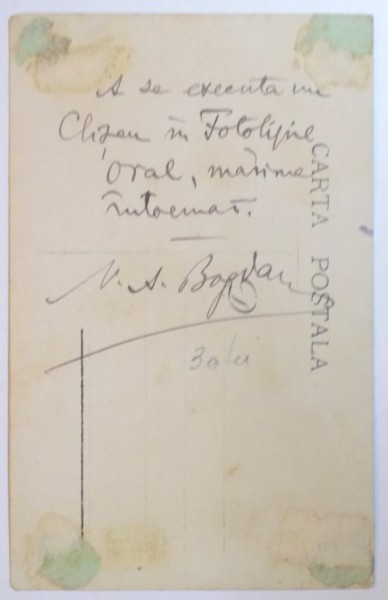 A se executa un
Clișeu în Fotolipie
oval, mărime
întocmai.
N. A. Bogdan
30 lei
CARTA POSTALA